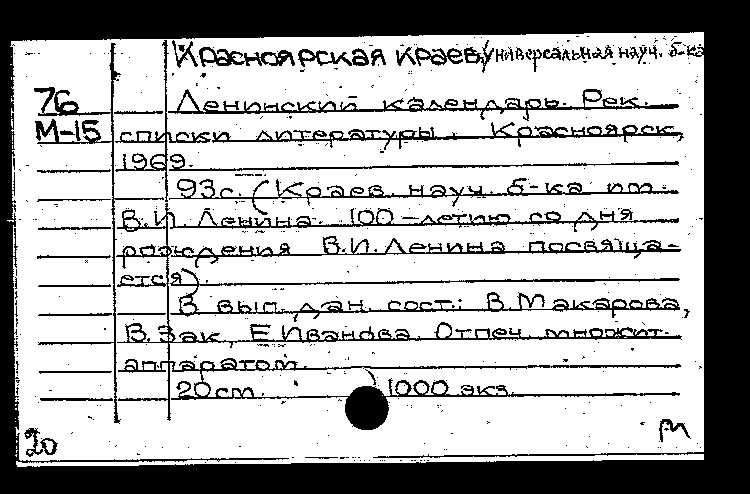 Красноярская краев. универсальная науч. б-ка
76 Ленинский календарь. Рек.
М-15 списки литературы. Красноярск,
1969.
93с. (Краев. науч. б-ка им.
В.И. Ленина. 100-летию со дня
рождения В.И. Ленина посвяща-
ется).
В вып. дан. сост.: В. Макарова,
В. Зак, Е Иванова. Отпеч. множит.
аппаратом.
20см. 1000 экз.
20